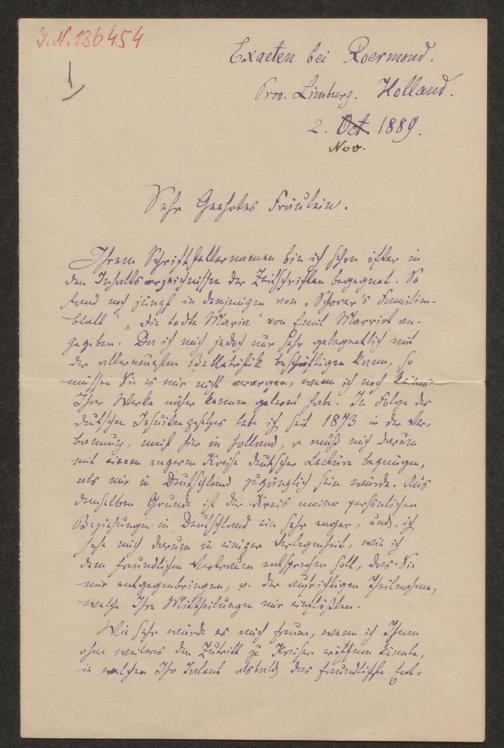 J.N. 136454
1
Exaeten bei Roermond.
Prov. Limburg. Holland.
2. Oct 1889.
Nov.
Sehr Geehrtes Fräulein.
Ihrem Schriftstellernamen bin ich schon öfter in
den Inhaltsverzeichnissen der Zeitschriften begegnet. So
fand noch jüngst in demjenigen von „Schorer's Familien-
blatt" „die todte Maria" von Emil Marriot an-
gegeben. Da ich mich jedoch nur sehr gelegentlich mit
der allerneuesten Belletristik beschäftigen kann, so
müssen Sie es mir nicht verargen, wenn ich noch keines
Ihrer Werke näher kennen gelernt habe. In Folge des
deutschen Jesuiten lebe ich seit 1873 in der Ver-
bannung, meist hier in Holland, u. muß mich darum
mit einem engeren Kreise deutscher Lectüre begnügen,
als mir in Deutschland zugänglich sein würde. Aus
demselben Grunde ist der Kreis meiner persönlichen
Beziehungen in Deutschland ein sehr enger, und ich
sehe mich darum in einiger Verlegenheit, wie ich
dem freundlichen Vertrauen entsprechen soll, das Sie
mir entgegenbringen, u. der aufrichtigen Theilnahme,
welche Ihre Mittheilungen mir einflößten.
Wie sehr würde es mich freuen, wenn ich Ihnen
ohne weiteres den Zutritt zu Kreisen eröffnen könnte,
in welchen Ihr Talent alsbald das freundlichste Ent-